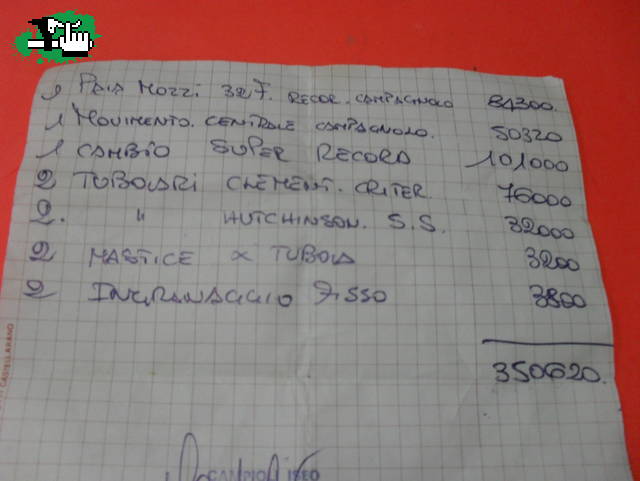 2 PAIA MOZZI 32 F. RECOR. CAMPAGNOLO 84300.
1 MOVIMENTO. CENTRALE CAMPAGNOLO. 50320
1 CAMBIO SUPER RECORD 101000
2 TUBOLARI CLEMENT. CRITER. 76000
2. " HUTCHINSON. S.S. 32000
2 MASTICE X TUBOLA 3200
2 INGRANAGGIO FISSO 3800
350620.
CASTELLARANO